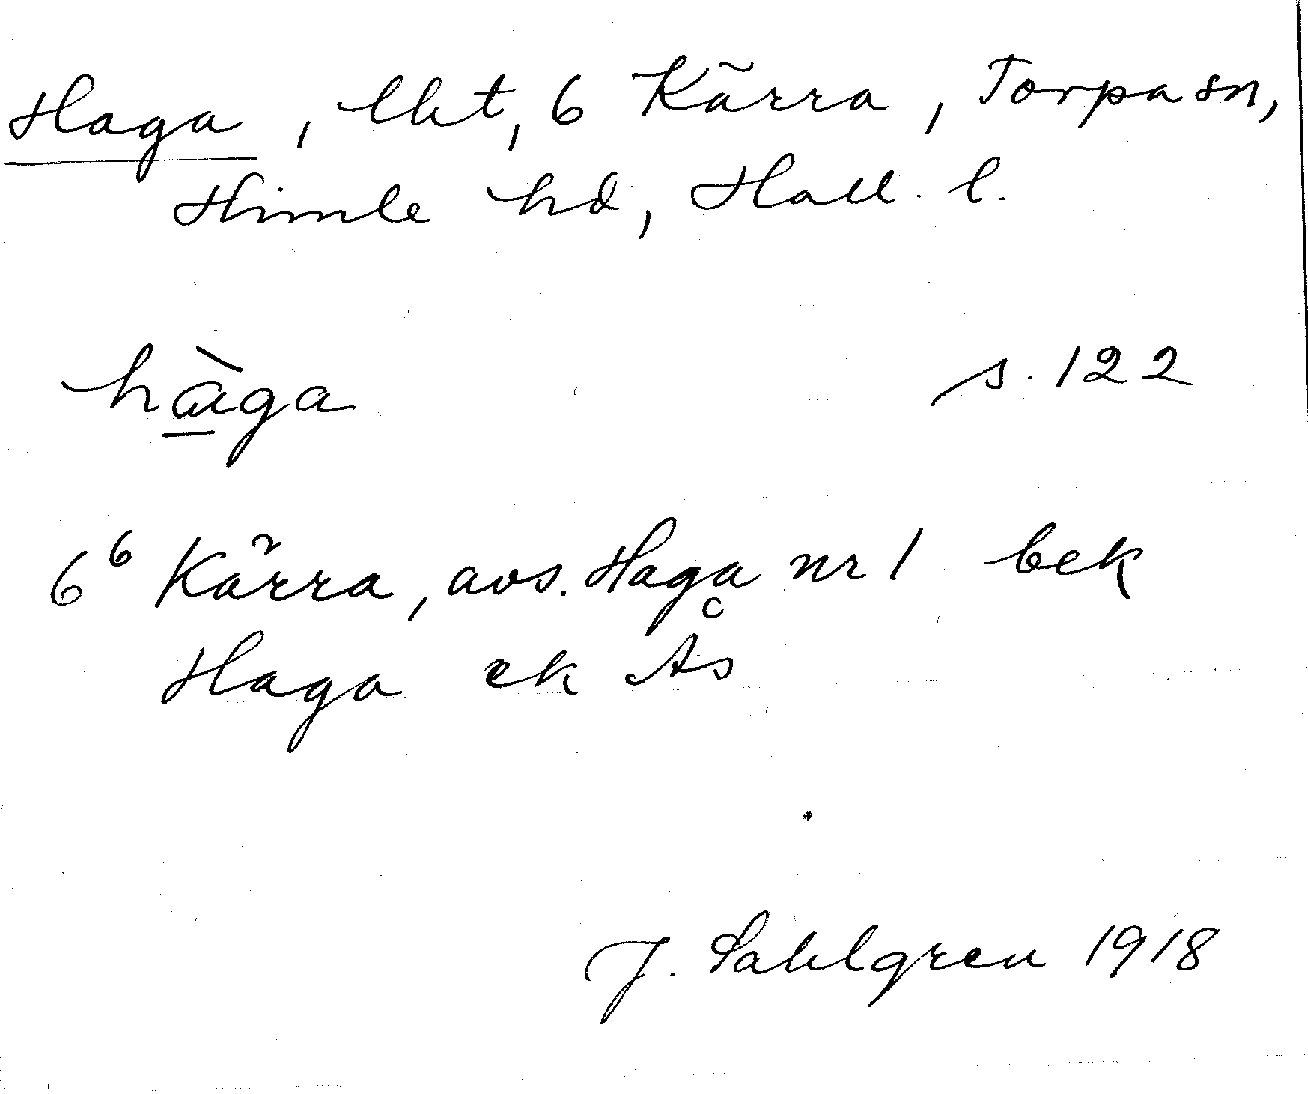 Haga, lht, 6 Kärra, Torpa sn,
Himle hd, Hall. l.
hàga s. 122
6⁶ Kärra, avs. Haga nr 1 bek
Haga ek Ås
J. Sahlgren 1918